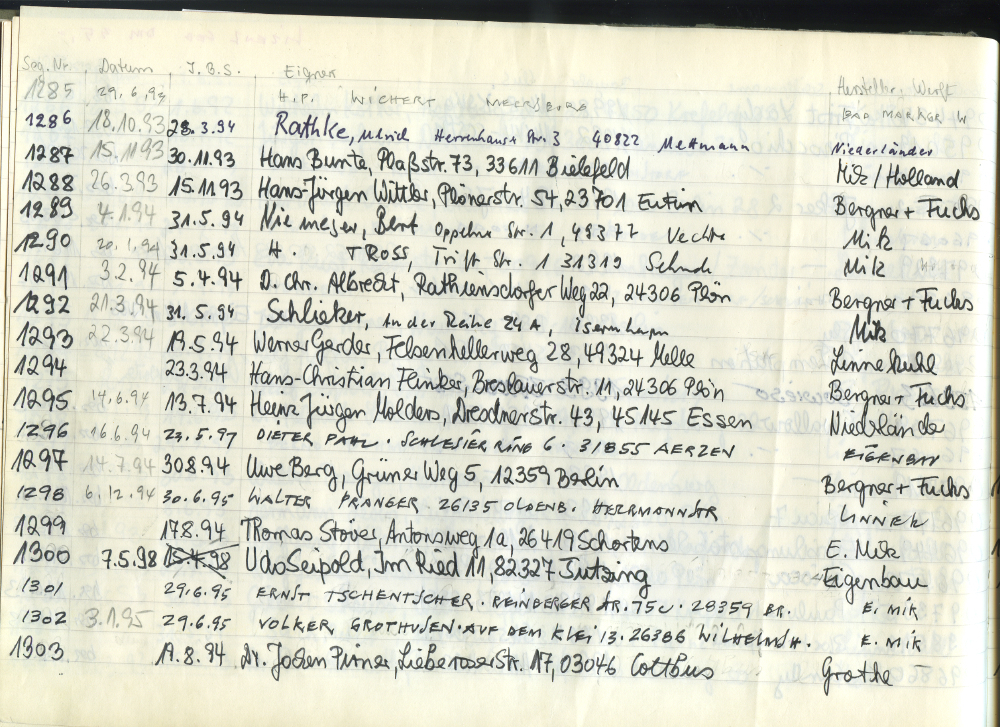 Seg. Nr. Datum J.B.S. Eigner Hersteller, Werft
1285 29.6.93 H.P. WICHERT MEERSBURG
1286 18.10.93 28.3.94 Rathke, Ulrich Herrenhauser Str. 3 40822 Mettmann Niederländer
1287 15.11.93 30.11.93 Hans Bunta, Plaßstr. 73, 33611 Bielefeld Mik/Holland
1288 26.3.93 15.11.93 Hans-Jürgen Wittler, Plönerstr. 54, 23701 Eutin Bergner + Fuchs
1289 4.1.94 31.5.94 Niemeyer, Bert Str. 1, 49377 Vechta Mik
1290 20.1.94 31.5.94 H. TROSS, Trift Str. 1 31319 Sehnde Mik
1291 3.2.94 5.4.94 D. Chr. Albrecht, Rathjensdorfer Weg 22, 24306 Plön Bergner + Fuchs
1292 21.3.94 31.5.94 Schlieker, An der Reihe 24A, Isernhagen Mik
1293 22.3.94 19.5.94 Werner Gerder, Felsenkellerweg 28, 49324 Melle Linnekuhl
1294 23.3.94 Hans-Christian Flinker, Breslauerstr. 11, 24306 Plön Bergner + Fuchs
1295 14.6.94 13.7.94 Heinz Jürgen Molders, Dresdnerstr. 43, 45145 Essen Niedslände
1296 16.6.94 23.5.97 DIETER PAHL · SCHLESIER RING 6 · 31855 AERZEN EIGENBAU
1297 14.7.94 30.8.94 Uwe Berg, Grüner Weg 5, 12359 Berlin Bergner + Fuchs
1298 6.12.94 30.6.95 WALTER PRANGER · 26135 OLDENB. HERRMANNSTR
1299 17.8.94 Thomas Stöver, Antonsweg 1a, 26419 Schortens E. Mik
1300 7.5.98 15.4.98 Udo Seipold, Im Ried 11, 82327 Tutzing Eigenbau
1301 29.6.95 ERNST TSCHENTSCHER · REINBERGER STR. 75C · 28359 BR. E. MIK
1302 3.1.95 29.6.95 VOLKER GROTHUSEN · AUF DEM KLEI 13 · 26386 WILHELMSH. E. MIK
1303 19.8.94 Dr. Jochen Pirner, Lieberoserstr. 17, 03046 Cottbus Grothe